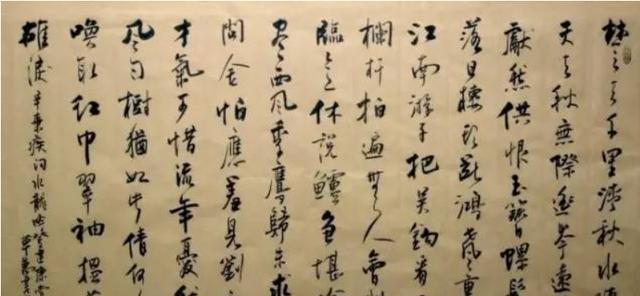 楚天千里清秋水隨
天去秋無際遙岑遠
獻愁供恨玉簪螺髻
落日樓頭斷鴻聲裏
江南游子把吳鉤看
欄杆拍遍無人會
臨意休說鱸魚堪
盡西風季鷹歸未求
問舍怕應羞見劉
才氣可惜流年憂
風雨樹猶如此倩何
喚取紅巾翠袖揾
雄淚
辛棄疾詞水龍吟登建康賞